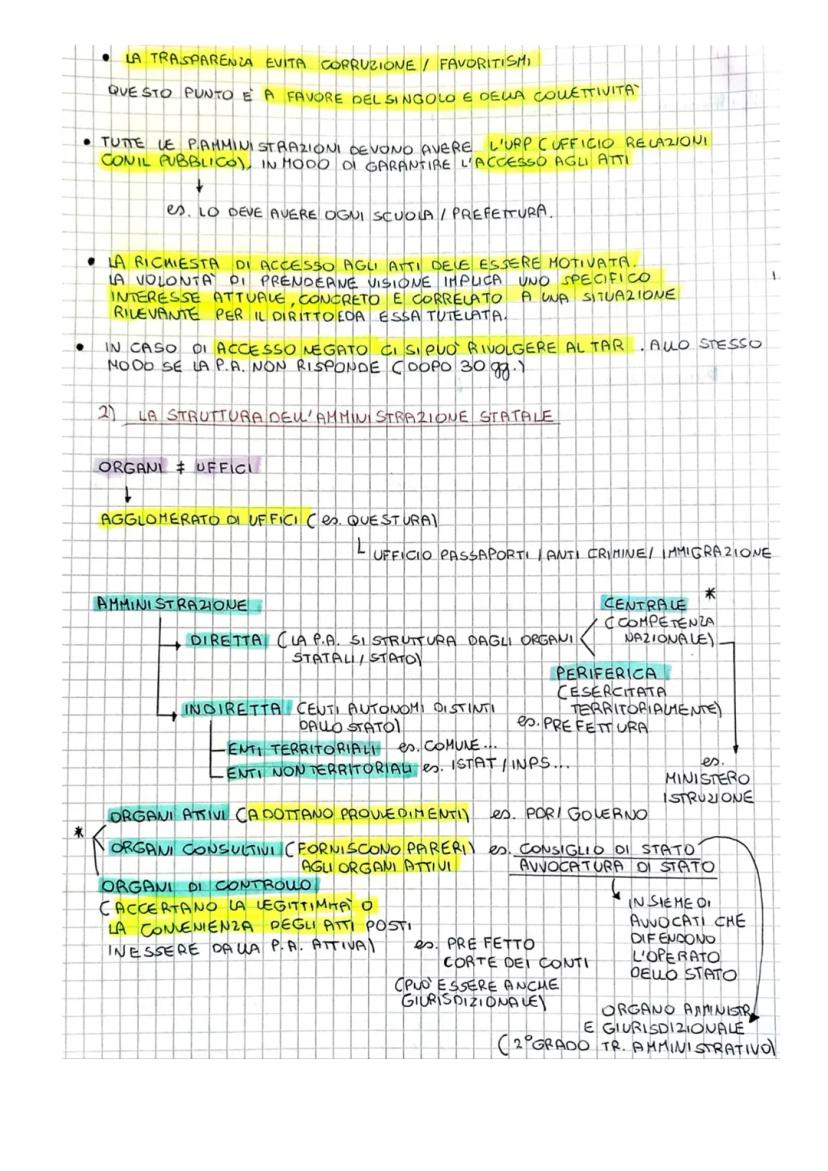 • LA TRASPARENZA EVITA CORRUZIONE / FAVORITISMI
QUESTO PUNTO È A FAVORE DEL SINGOLO E DELLA COLLETTIVITÀ
• TUTTE LE P.AMMINISTRAZIONI DEVONO AVERE L'URP (UFFICIO RELAZIONI
CON IL PUBBLICO), IN MODO DI GARANTIRE L'ACCESSO AGLI ATTI
↓
es. LO DEVE AVERE OGNI SCUOLA / PREFETTURA.
• LA RICHIESTA DI ACCESSO AGLI ATTI DEVE ESSERE MOTIVATA.
LA VOLONTÀ DI PRENDERNE VISIONE IMPLICA UNO SPECIFICO
INTERESSE ATTUALE, CONCRETO E CORRELATO A UNA SITUAZIONE
RILEVANTE PER IL DIRITTO E DA ESSA TUTELATA.
• IN CASO DI ACCESSO NEGATO CI SI PUÒ RIVOLGERE AL TAR. ALLO STESSO
MODO SE LA P.A. NON RISPONDE (DOPO 30 gg.)
2) LA STRUTTURA DELL'AMMINISTRAZIONE STATALE
ORGANI ≠ UFFICI
↓
AGGLOMERATO DI UFFICI (es. QUESTURA)
UFFICIO PASSAPORTI / ANTI CRIMINE / IMMIGRAZIONE
AMMINISTRAZIONE
→ DIRETTA (LA P.A. SI STRUTTURA DAGLI ORGANI
STATALI / STATO)
CENTRALE *
(COMPETENZA
NAZIONALE)
PERIFERICA
(ESERCITATA
TERRITORIALMENTE)
es. PREFETTURA
es.
MINISTERO
ISTRUZIONE
→ INDIRETTA (ENTI AUTONOMI DISTINTI
DALLO STATO)
ENTI TERRITORIALI es. COMUNE...
ENTI NON TERRITORIALI es. ISTAT / INPS...
* ORGANI ATTIVI (ADOTTANO PROVVEDIMENTI) es. PDR / GOVERNO
ORGANI CONSULTIVI (FORNISCONO PARERI
AGLI ORGANI ATTIVI
es. CONSIGLIO DI STATO
AVVOCATURA DI STATO
INSIEME DI
AVVOCATI CHE
DIFENDONO
L'OPERATO
DELLO STATO
ORGANI DI CONTROLLO
(ACCERTANO LA LEGITTIMITÀ O
LA CONVENIENZA DEGLI ATTI POSTI
IN ESSERE DALLA P.A. ATTIVA)
es. PREFETTO
CORTE DEI CONTI
(PUÒ ESSERE ANCHE
GIURISDIZIONALE)
ORGANO AMMINISTR.
E GIURISDIZIONALE
(2° GRADO TR. AMMINISTRATIVO)